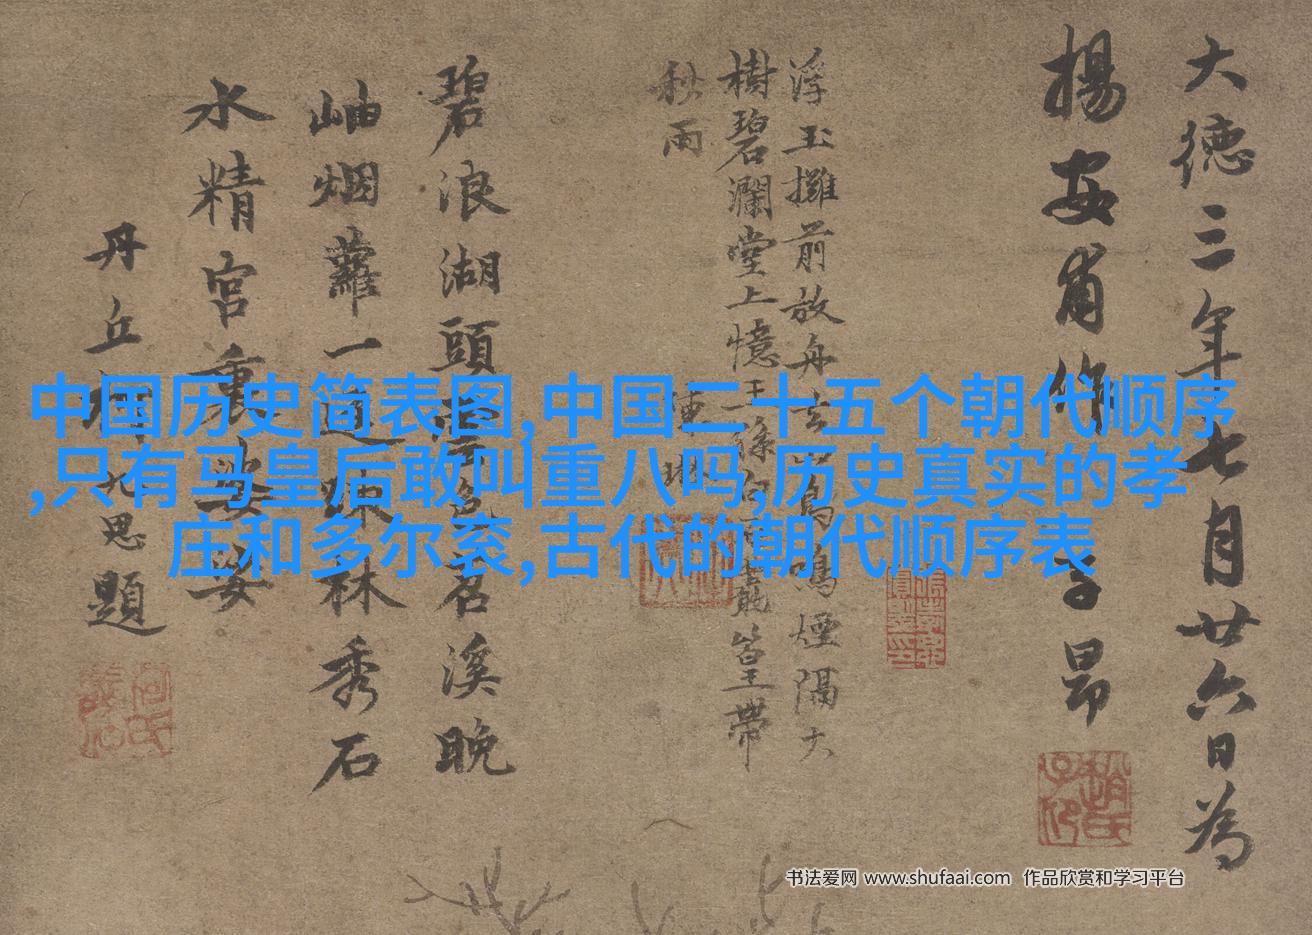 大德三年七月廿六日為
揚安甫作子昂
浮玉攤前放舟去鳴煙隔大
樹碧瀾堂上憶王孫篁帶
秋雨陳琳
碧浪湖頭溪晚
岫烟蘿一林秀石
水精宮裏姿
丹丘柯九思題
中国历史简表图,中国二十五个朝代顺序
,只有马皇后敢叫重八吗,历史真实的孝
庄和多尔衮,古代的朝代顺序表
书法爱网 www.shufaai.com 作品欣赏和学习平台